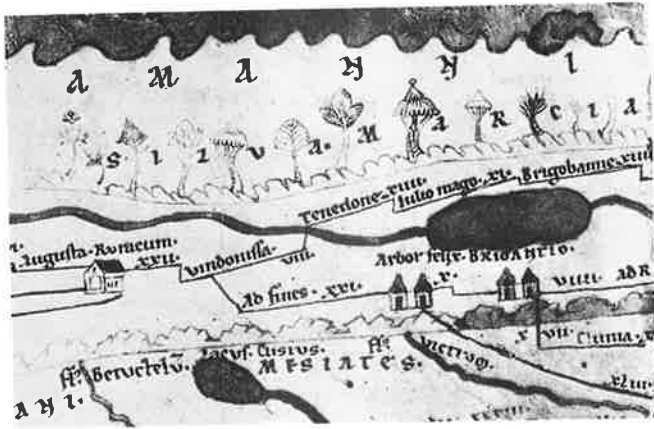 A M A N N I
SILVA. MARCIA
Tenedone. XIIII. Iulio mago. XI. Brigobanne. XIII
Augusta. Ruracum. XXII. Vindonissa VIII. Arbor felix. BRIGANTIO.
Ad fines. XXI. X. VIIII. AD R
X VII. Clunia. X
fl. Betuctelū. Lacus. Cusius. fl. VICTIUM
MESIATES. XLIII
ANI.